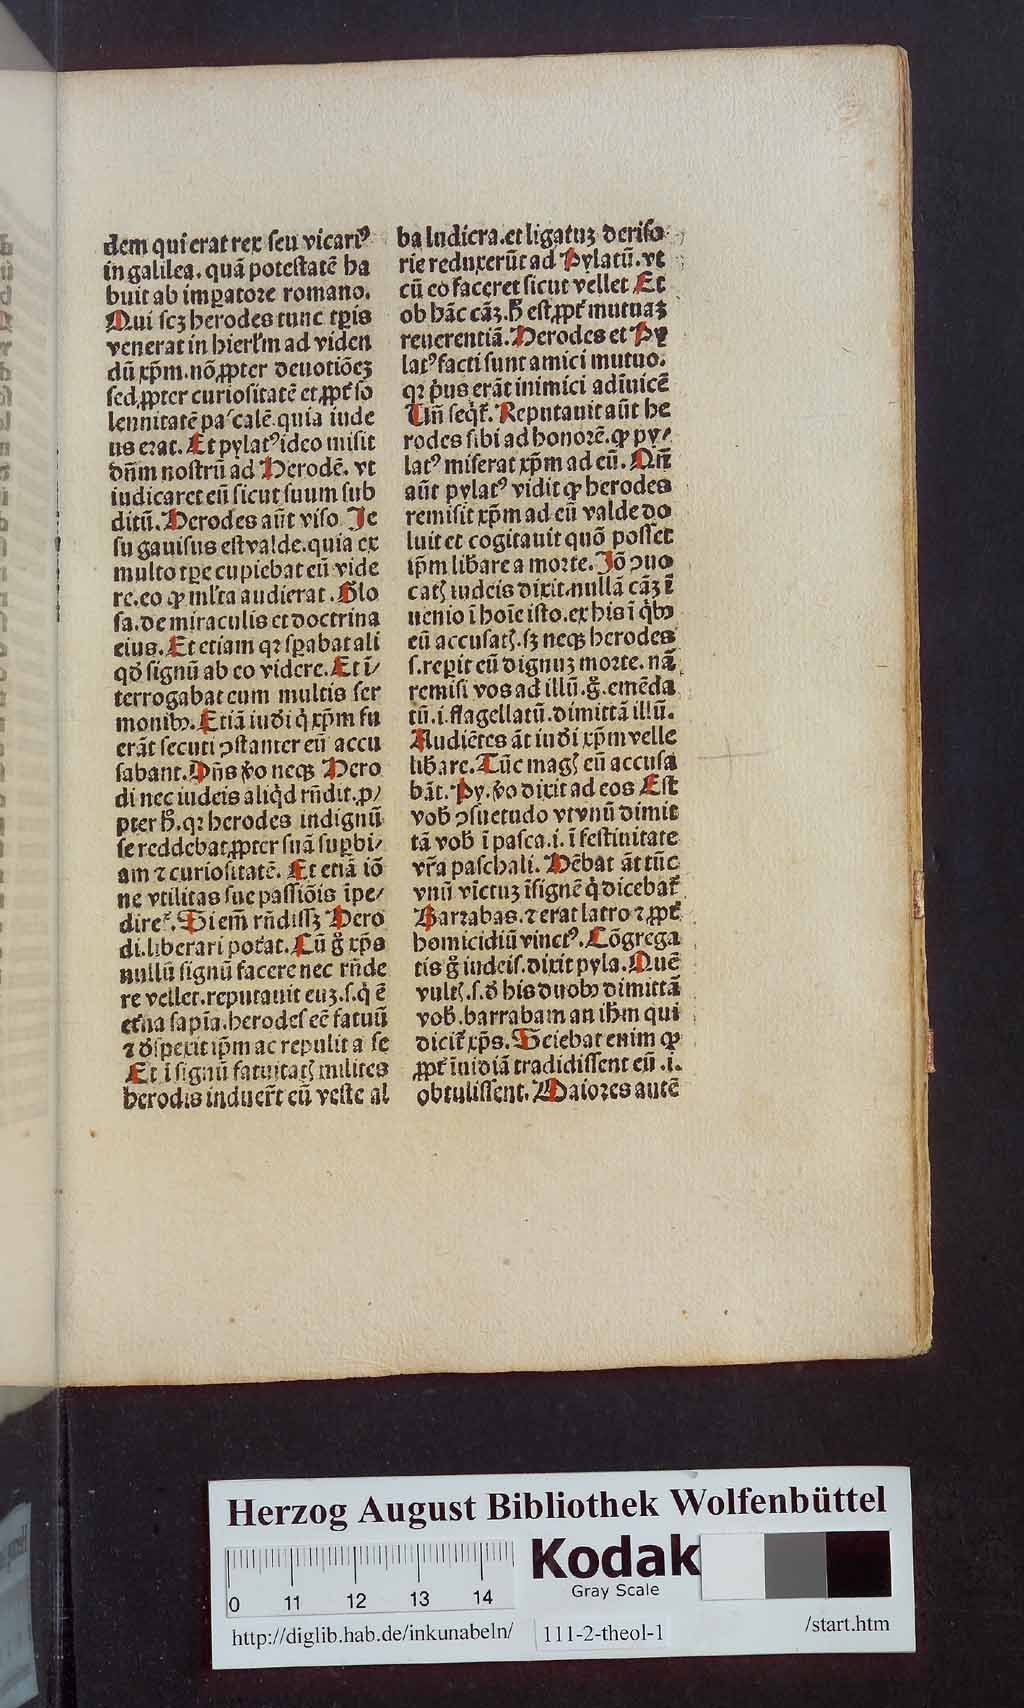 dem qui erat rex seu vicariꝰ
in galilea. quā potestatē ha
buit ab imꝑatore romano.
Qui scꝫ herodes tunc tꝑis
venerat in hierl'm ad viden
dū xp̄m. nō ꝓpter deuotiōeꝫ
sed ꝓpter curiositatē et ꝓpt̄ so
lennitatē pascalē. quia iude
us erat. Et pylatꝰ ideo misit
dn̄m nostrū ad Herodē. vt
iudicaret eū sicut suum sub
ditū. Herodes aūt viso Je
su gauisus est valde. quia ex
multo tꝑe cupiebat eū vide
re. eo ꝙ ml'ta audierat. Glo
sa. de miraculis et doctrina
eius. Et etiam qꝛ sꝑabat ali
qd̄ signū ab eo videre. Et ī/
terrogabat eum multis ser
monibꝫ. Etiā iud̄i q̇ xp̄m fu
erāt secuti ꝯstanter eū accu
sabant. Dn̄s v̄o neqꝫ Hero
di nec iudeis aliqd̄ rn̄dit. ꝓ/
pter h̄. qꝛ herodes indignū
se reddebat ꝓpter suā suꝑbi/
am ⁊ curiositatē. Et etiā iō
ne vtilitas sue passiōis īpe/
diret̄. Si em̄ rn̄dissꝫ Hero
di. liberari poterat. Cū g̊ xp̄s
nullū signū facere nec rn̄de
re vellet. reputauit euꝫ. s. q̇ ē
et̄na sapīa. herodes eē fatuū
⁊ d̄spexit ip̄m ac repulit a se
Et ī signū fatuitatꝭ milites
herodis induer̄t eū veste al
ba ludicra. et ligatuꝫ deriso
rie reduxerūt ad Pylatū. vt
cū eo faceret sicut vellet Et
ob hāc cāꝫ. h̄ est ꝓpt̄ mutuaꝫ
reuerentiā. Herodes et Py
latꝰ facti sunt amici mutuo.
qꝛ pͥus erāt inimici adīuicē
Tm̄ seqt̄. Reputauit aūt he
rodes sibi ad honorē. ꝙ py/
latꝰ miserat xp̄m ad eū. Qn̄
aūt pylatꝰ vidit ꝙ herodes
remisit xp̄m ad eū valde do
luit et cogitauit quō posset
ip̄m lib̄are a morte. Jō ꝯuo
catꝭ iudeis dixit. nullā cāꝫ ī
uenio ī hoīe isto. ex his ī qͥbꝫ
eū accusatꝭ. sꝫ neqꝫ herodes
s. reꝑit eū dignuꝫ morte. nā
remisi vos ad illū. g̊. emēda
tū. i. flagellatū. dimittā illū.
Audiētes āt iud̄i xp̄m velle
lib̄are. Tūc magꝭ eū accusa
bāt. Py. v̄o dixit ad eos Est
vob̄ ꝯsuetudo vt vnū dimit
tā vob̄ ī pasca. i. ī festiuitate
vr̄a paschali. Hēbat āt tūc
vnū vīctuꝫ īsignē q̇ dicebat̄
Barrabas. ⁊ erat latro ⁊ ꝓpt̄
homicidiū vinctꝰ. Cōgrega
tis g̊ iudeis. dixit pyla. Quē
vultꝭ. s. d̄ his duobꝫ dimittā
vob̄. barrabam an ih̄m qui
dicit̄ xp̄s. Sciebat enim ꝙ
ꝓpt̄ īuidiā tradidissent eū .i.
obtulissent. Maiores autē
Herzog August Bibliothek Wolfenbüttel
Kodak
Gray Scale
0 11 12 13 14
http://diglib.hab.de/inkunabeln/ 111-2-theol-1 /start.htm